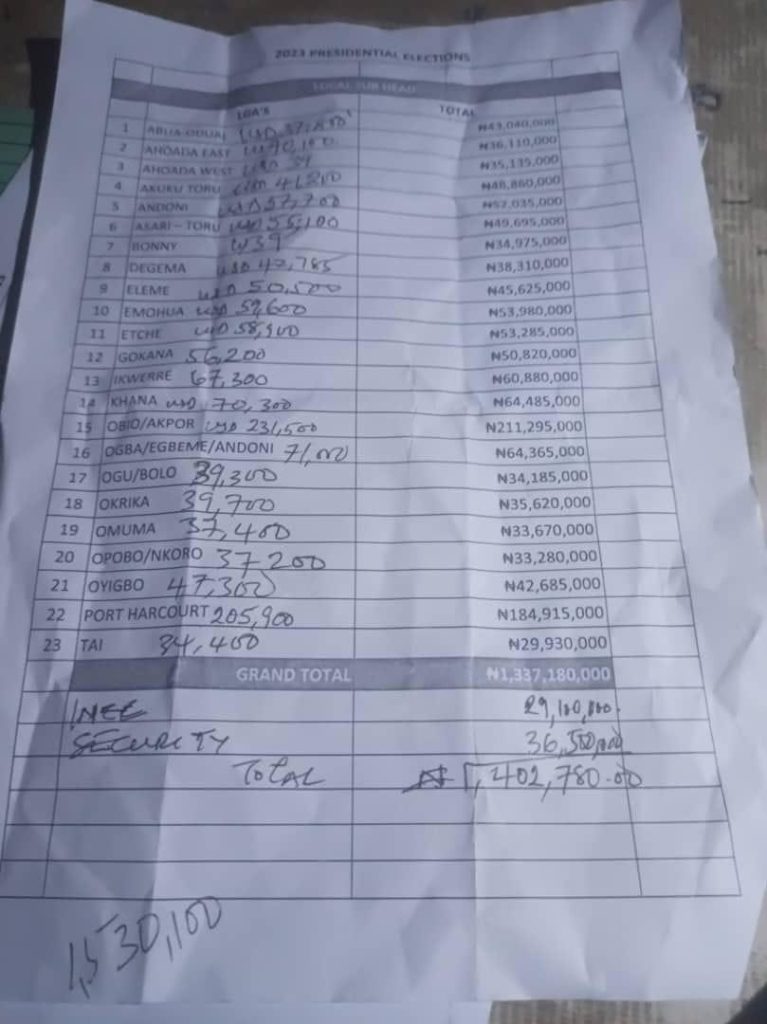 2023 PRESIDENTIAL ELECTIONS
LOCAL SUB HEAD
LGA'S TOTAL
1 ABUA ODUAL USD ₦43,040,000
2 AHOADA EAST ₦36,110,000
3 AHOADA WEST ₦35,135,000
4 AKUKU TORU ₦48,860,000
5 ANDONI USD 57,700 ₦52,035,000
6 ASARI-TORU USD 55,100 ₦49,695,000
7 BONNY ₦34,975,000
8 DEGEMA USD 42,785 ₦38,310,000
9 ELEME USD 50,500 ₦45,625,000
10 EMOHUA USD 59,600 ₦53,980,000
11 ETCHE USD 58,900 ₦53,285,000
12 GOKANA 56,200 ₦50,820,000
13 IKWERRE 67,300 ₦60,880,000
14 KHANA USD 70,300 ₦64,485,000
15 OBIO/AKPOR USD 231,500 ₦211,295,000
16 OGBA/EGBEME/ANDONI 71,000 ₦64,365,000
17 OGU/BOLO 39,300 ₦34,185,000
18 OKRIKA 39,700 ₦35,620,000
19 OMUMA 37,400 ₦33,670,000
20 OPOBO/NKORO 37,200 ₦33,280,000
21 OYIGBO 47,300 ₦42,685,000
22 PORT HARCOURT 205,900 ₦184,915,000
23 TAI 34,400 ₦29,930,000
GRAND TOTAL ₦1,337,180,000
INEC 29,100,000
SECURITY 36,500,000
TOTAL ₦1,402,780.00
1,530,100